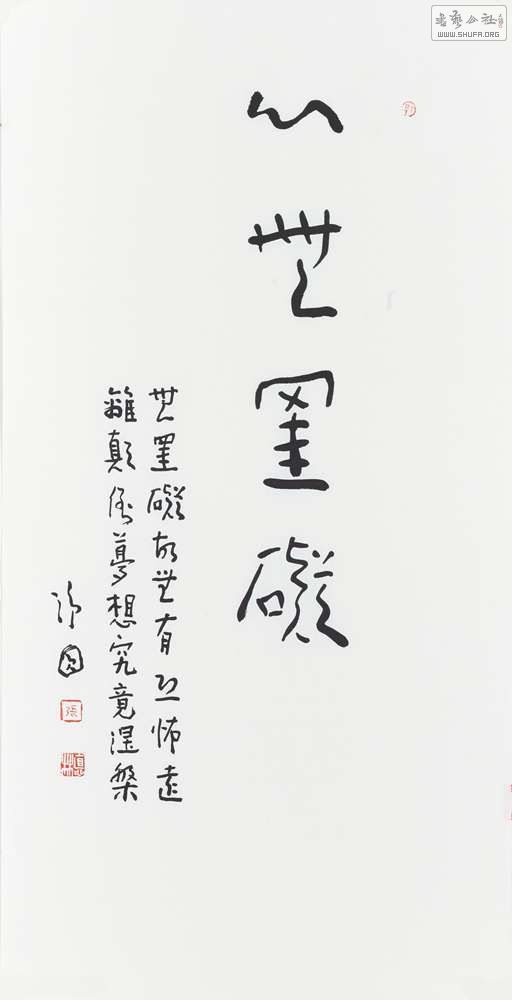 心無罣礙
無罣礙故無有恐怖遠
離顛倒夢想究竟涅槃
書藝公社
WWW.SHUFA.ORG
張